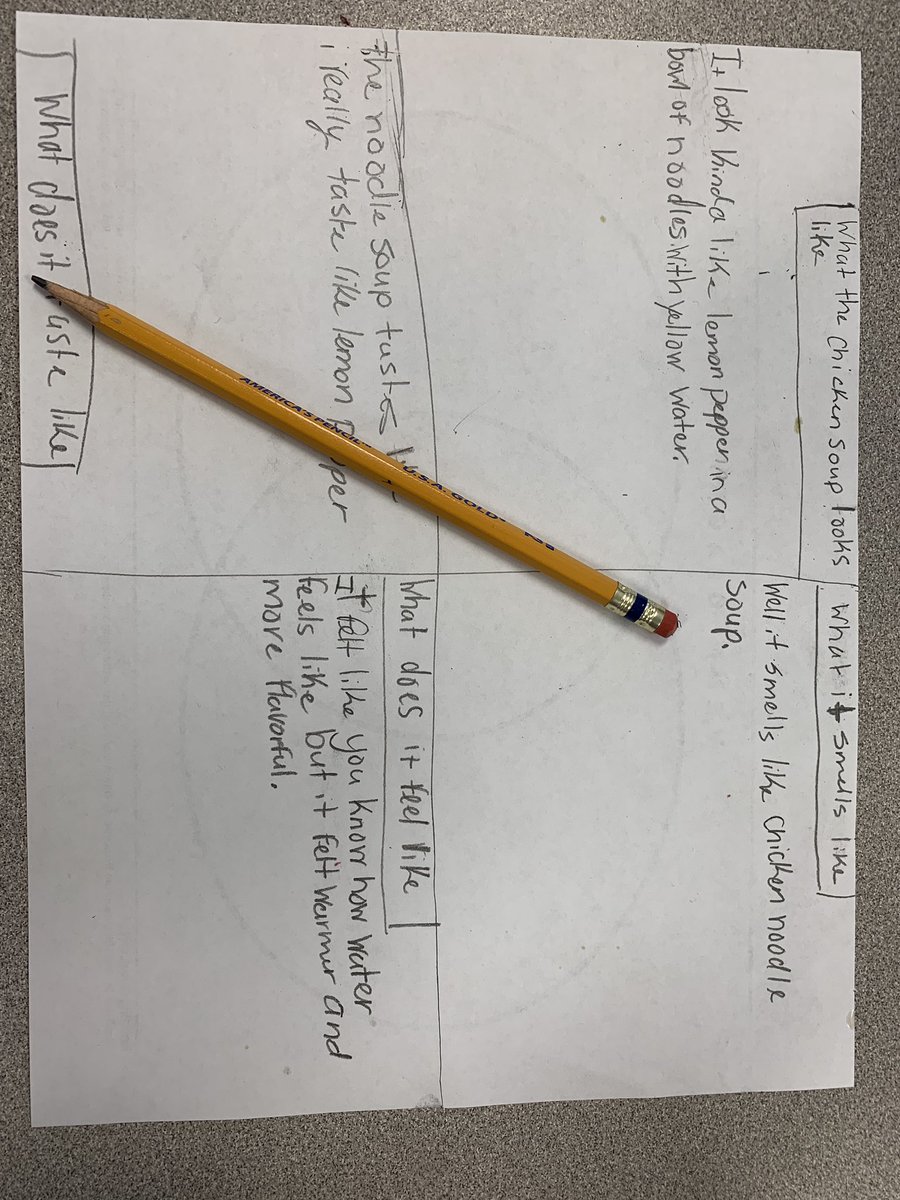 What the chicken soup looks
like
It look kinda like lemon pepper in a
bowl of noodles with yellow water.
What it smells like
Well it smells like chicken noodle
soup.
the noodle soup tastes
i really taste like lemon
What does it taste like
What does it feel like
It felt like you know how water
feels like but it felt warmer and
more flavorful.
AMERICA'S PENCIL U.S.A. GOLD